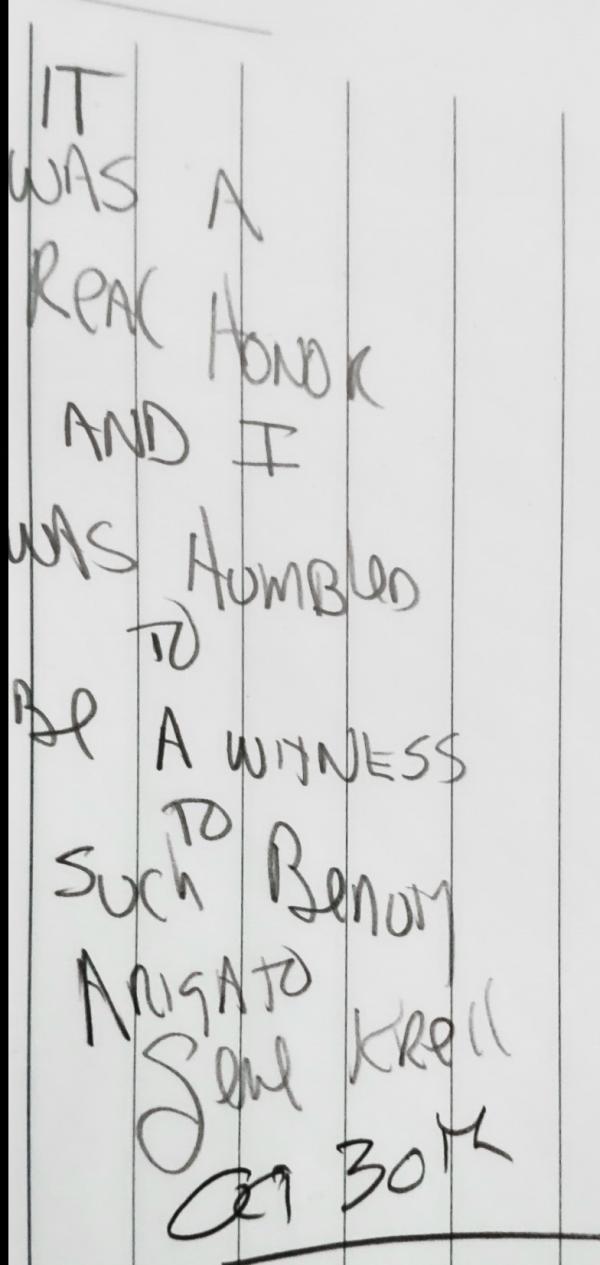 IT
WAS A
REAL HONOR
AND I
WAS HUMBLED
TO
BE A WITNESS
TO
SUCH
ARIGATO
Gene Krell
Oct 30th